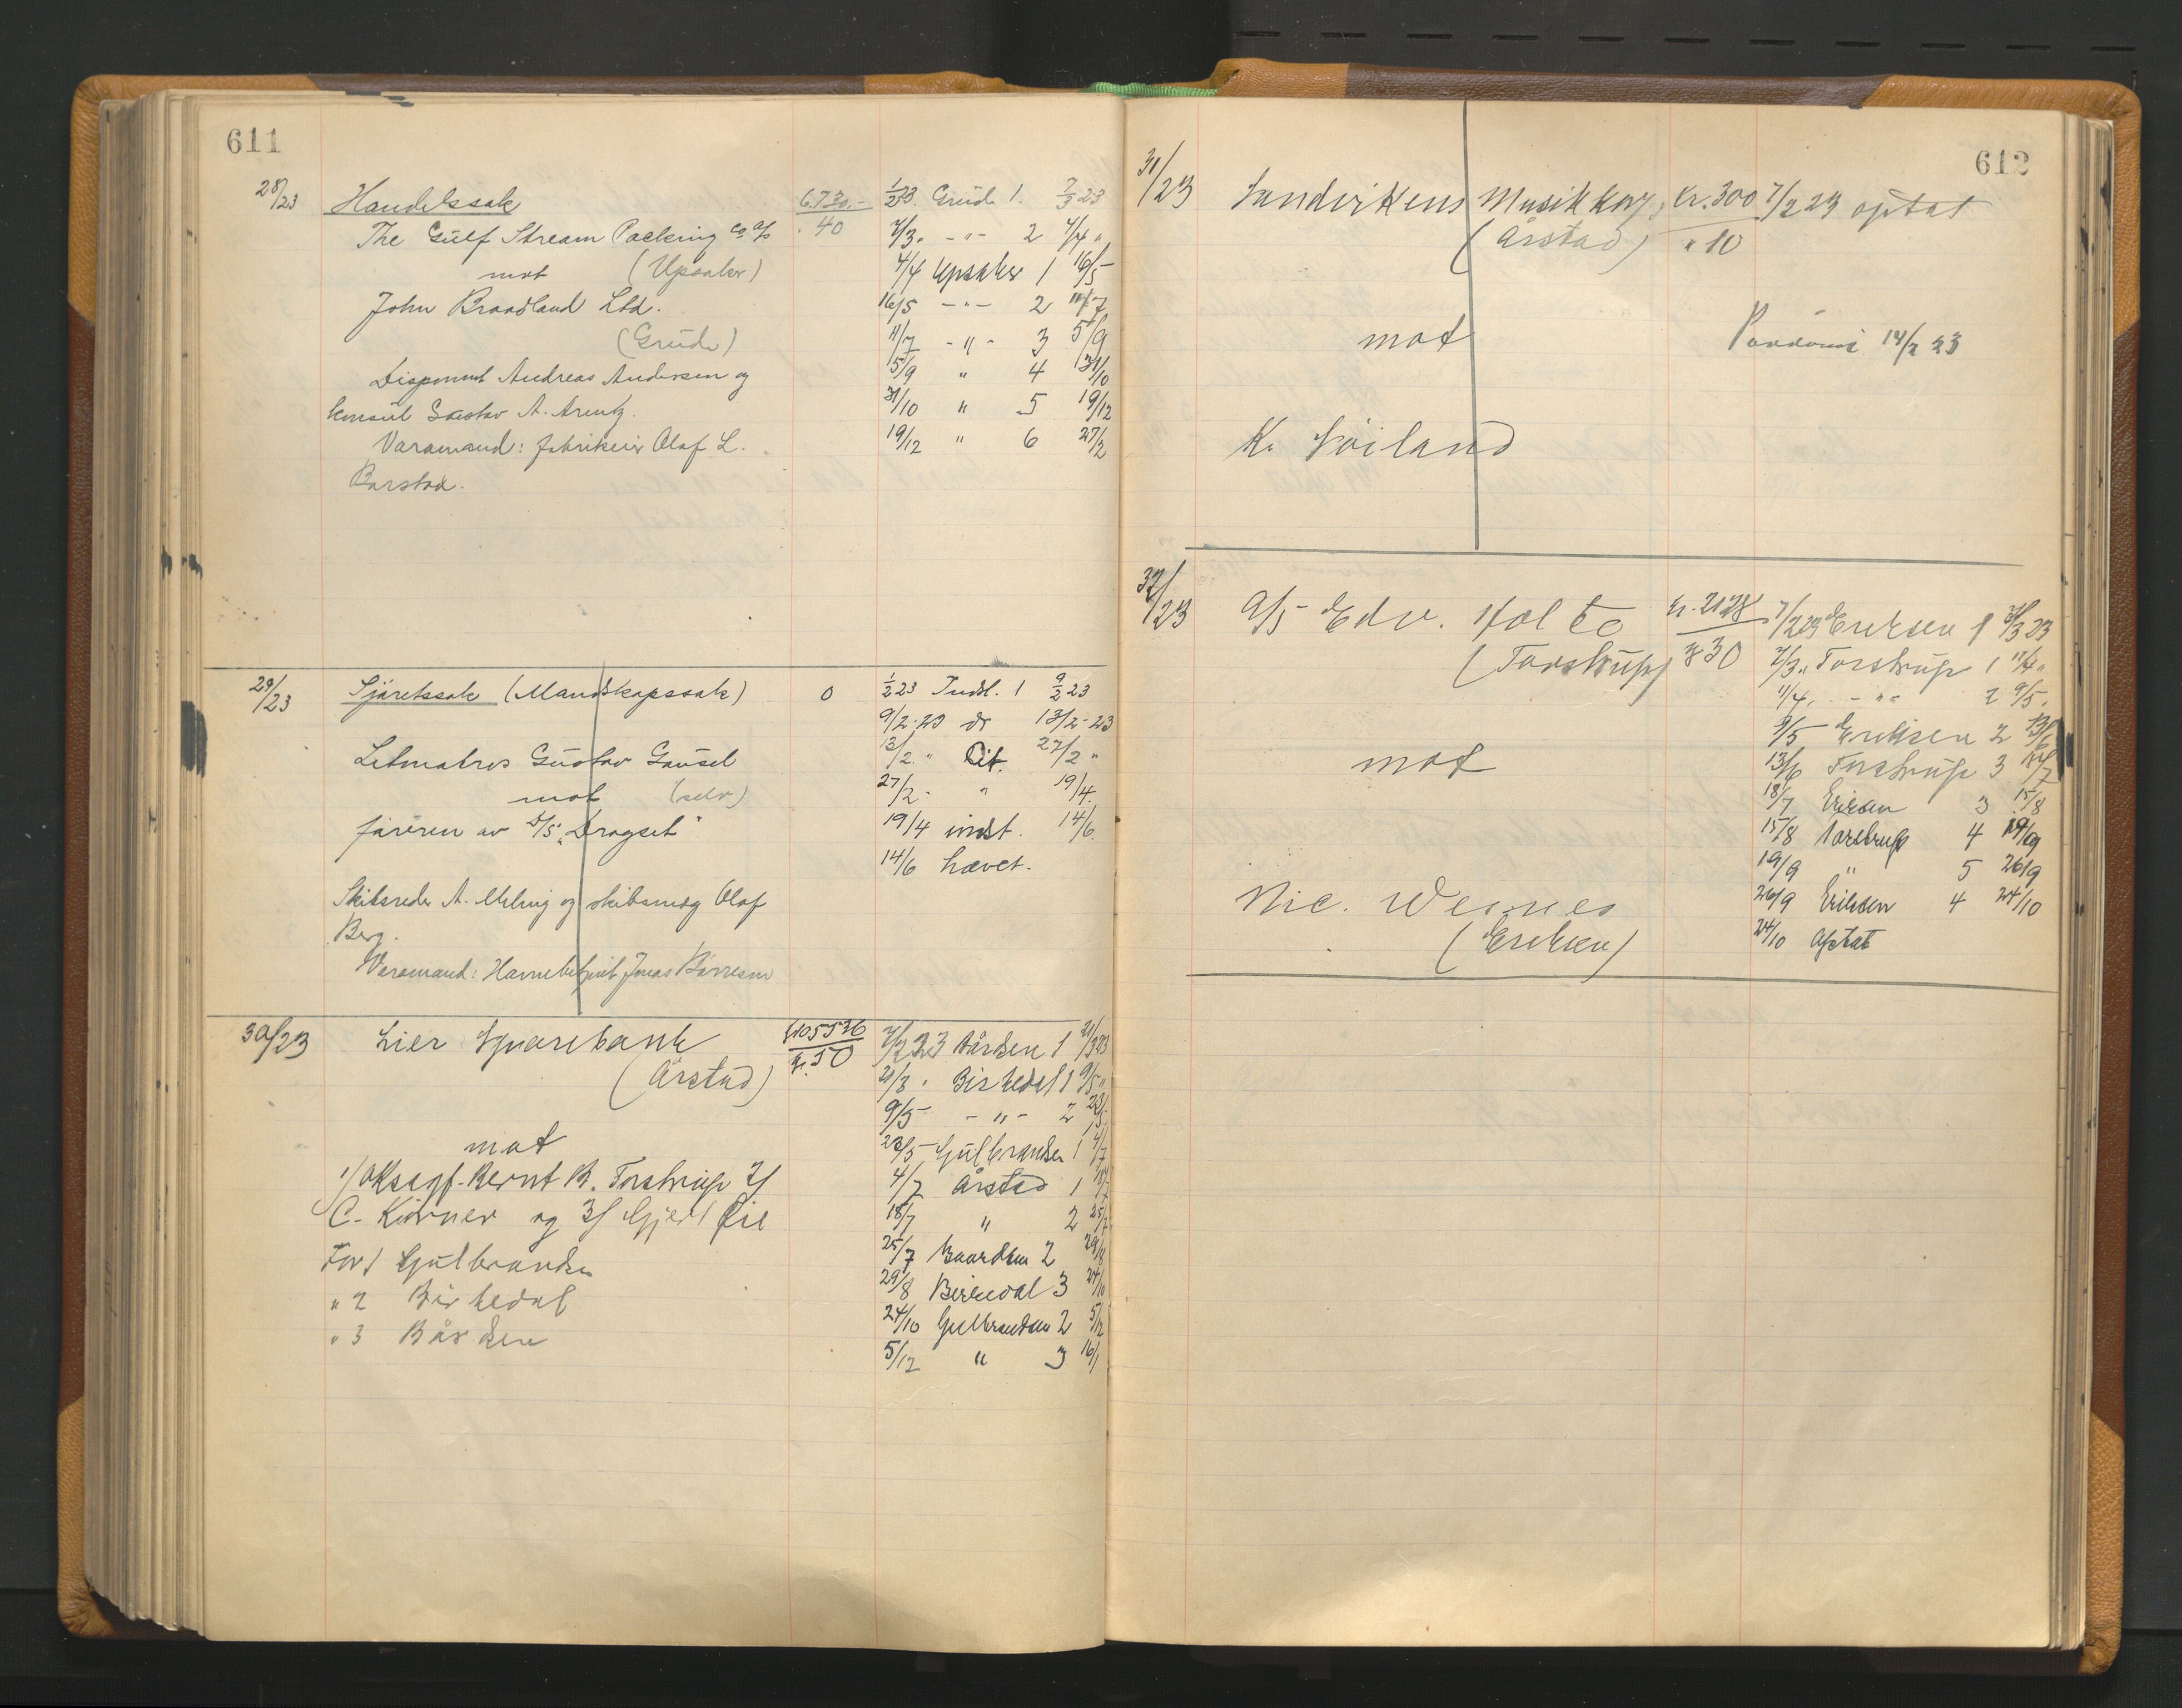 611
28/23 Handelssak 6.730.- 1/2 23. Grude 1. 7/3 23
The Gulf Stream Packing Co A/S . 40 7/3 " - " - 2 4/4 "
mot (Upsaker) 4/4 Upsaker 1 16/5
John Braadland Ltd. 16/5 - " - 2 11/7
(Grude) 11/7 - " - 3 5/9
Disponent Andreas Andersen og 5/9 " 4 31/10
konsul Gustav A. Arentz. 31/10 " 5 19/12
Varamand: fabrikeier Olaf L. 19/12 " 6 27/2
Barstad.
29/23 Sjøretssak (Mandskapssak) 0 1/2 23 Indl. 1 9/2 23
9/2-23 do 13/2-23
Letmatros Gustav Gausel 13/2 " Cit. 27/2 "
mot (selv) 27/2 - " 19/4.
føreren av D/S "Dragset" 19/4 indst. 14/6.
14/6 hævet.
Skibsreder A. Meling og skibsmæg Olaf
Berg.
Varamand: Havnebetjent Jonas Børresen
30/23 Lier Sparebank kr 105536 7/2 23 Bårdsen 1 21/3 23
(Årstad) kr. 50 21/3 " Birkedal 1 9/5 "
9/5 - " - 2 23/5
mot 23/5 Gulbrandsen 1 4/7
1/ Oksagf. Bernt B. Torstrup 2/ 4/7 Årstad 1 18/7
C. Kørner og 3/ Gjert Eie 18/7 " 2 25/7
For 1 Gulbrandsen 25/7 Baardsen 2 29/8
" 2 Birkedal 29/8 Birkedal 3 24/10
" 3 Bårdsen 24/10 Gulbrandsen 2 5/12
5/12 " 3 16/1
612
31/23 Sandvikens Musikkorps kr. 300 7/2 23 optat
(Årstad) " 10
mot 14/2 23
K. Søiland
32/23 A/S Edv. Holt Co kr. 2128 7/2 23 Eriksen 1 7/3 23
(Torstrup) kr 30 7/3 " Torstrup 1 11/4 "
11/4 " - " - 2 9/5 "
9/5 Eriksen 2 13/6
mot 13/6 Torstrup 3 18/7
18/7 Eriksen 3 15/8
15/8 Torstrup 4 19/9
19/9 " 5 26/9
Nic. Wernes 26/9 Eriksen 4 24/10
(Eriksen) 24/10 Optat